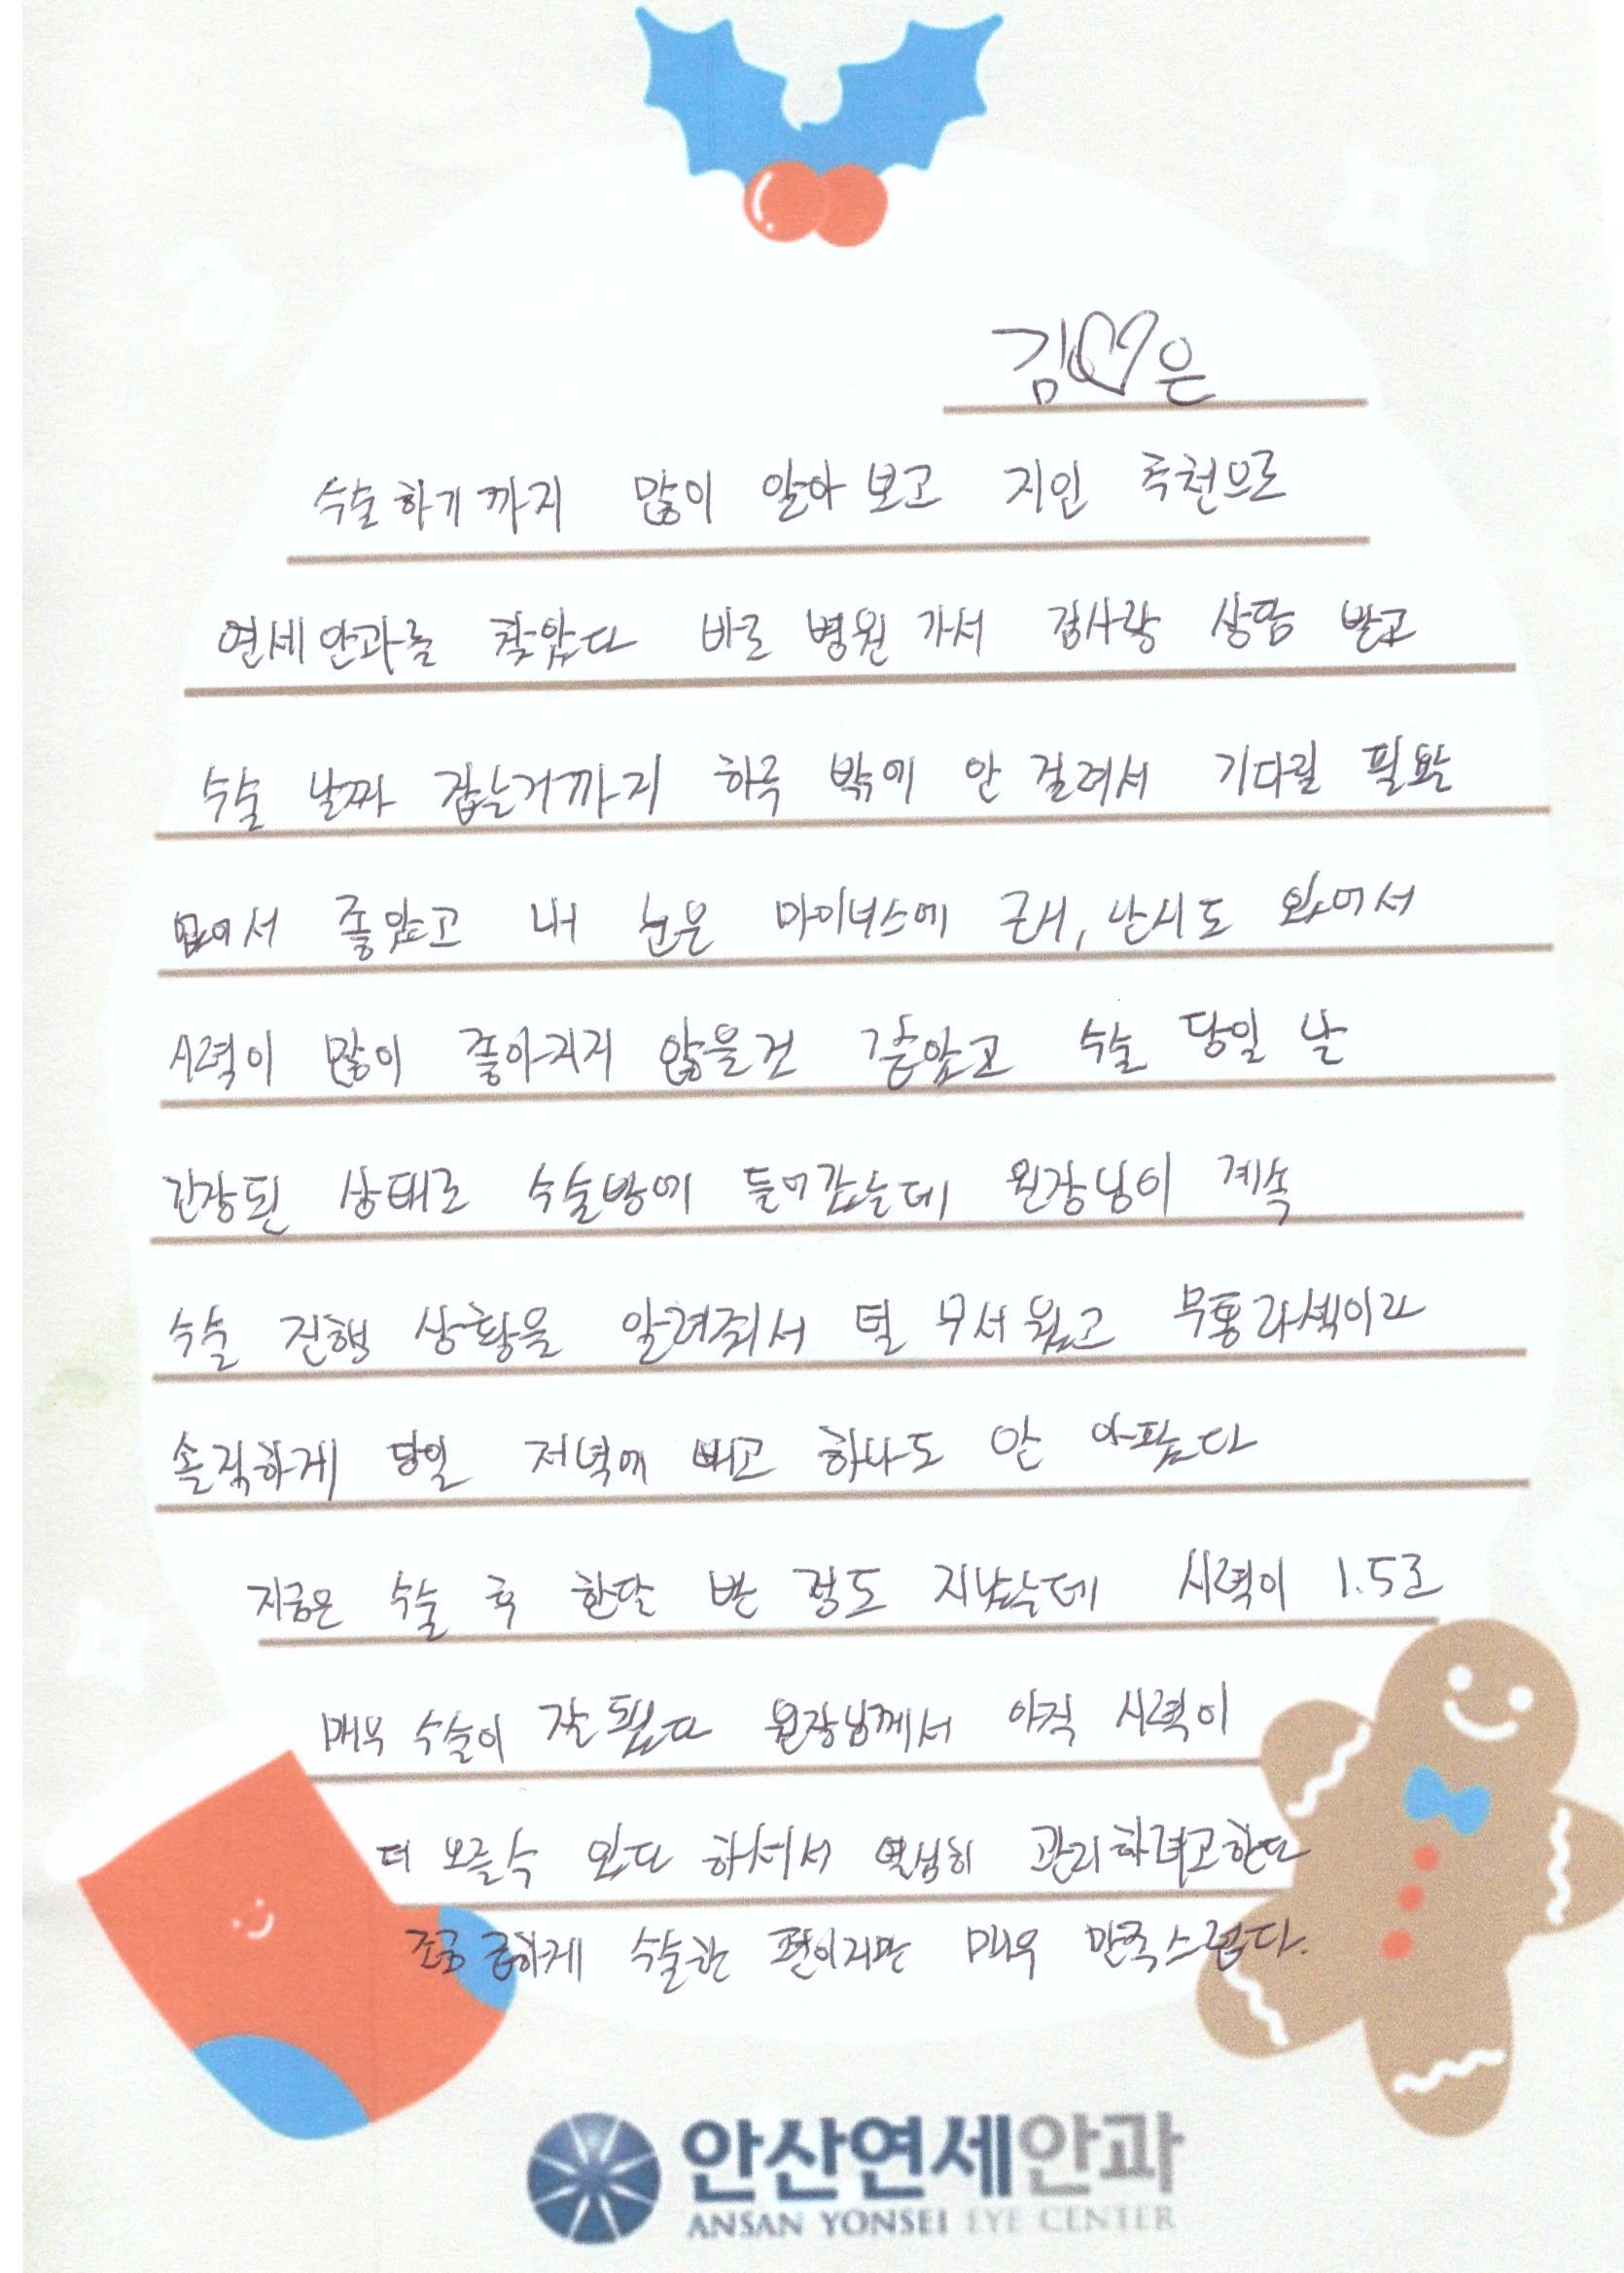 김♡은
수술하기까지 많이 알아보고 지인 추천으로
연세안과를 찾았다 바로 병원 가서 검사랑 상담 받고
수술 날짜 잡는거까지 하루 밖에 안 걸려서 기다릴 필요가
없어서 좋았고 내 눈은 마이너스에 근시, 난시도 있어서
시력이 많이 좋아지지 않을건 같았고 수술 당일 날
긴장된 상태로 수술방에 들어갔는데 원장님이 계속
수술 진행 상황을 알려줘서 덜 무서웠고 무통라섹이라
솔직하게 당일 저녁에 빼고 하나도 안 아팠다
지금은 수술 후 한달 반 정도 지났는데 시력이 1.5로
매우 수술이 잘 됐다 원장님께서 아직 시력이
더 오를수 있다 하셔서 열심히 관리하려고한다
조금 급하게 수술한 편이지만 매우 만족스럽다.
안산연세안과
ANSAN YONSEI EYE CENTER